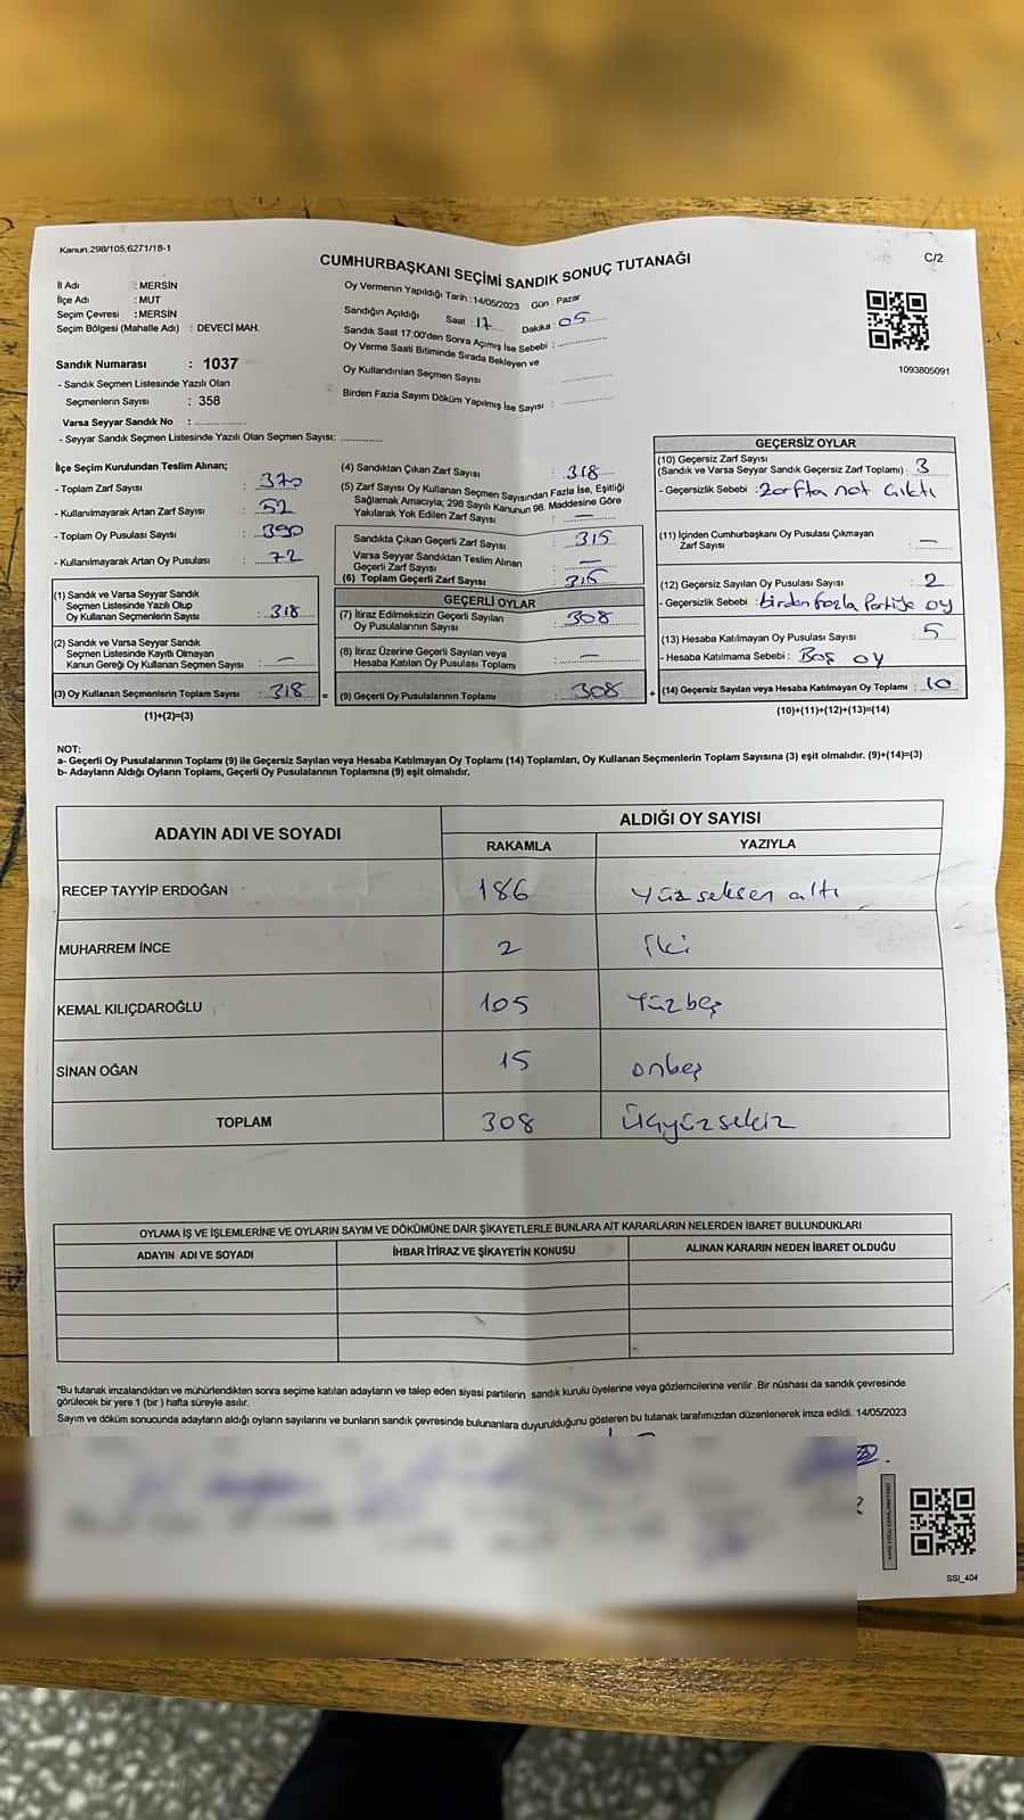 Kanun 298/105,6271/18-1
CUMHURBAŞKANI SEÇİMİ SANDIK SONUÇ TUTANAĞI
C/2
İl Adı : MERSİN
İlçe Adı : MUT
Seçim Çevresi : MERSİN
Seçim Bölgesi (Mahalle Adı) : DEVECİ MAH.
Sandık Numarası : 1037
- Sandık Seçmen Listesinde Yazılı Olan
Seçmenlerin Sayısı : 358
Varsa Seyyar Sandık No :
- Seyyar Sandık Seçmen Listesinde Yazılı Olan Seçmen Sayısı:
Oy Vermenin Yapıldığı Tarih :14/05/2023 Gün : Pazar
Sandığın Açıldığı Saat : 17 Dakika : 05
Sandık Saat 17:00'den Sonra Açılmış İse Sebebi :
Oy Verme Saati Bitiminde Sırada Bekleyen ve
Oy Kullandırılan Seçmen Sayısı :
Birden Fazla Sayım Döküm Yapılmış İse Sayısı :
1093805091
İlçe Seçim Kurulundan Teslim Alınan;
- Toplam Zarf Sayısı : 370
- Kullanılmayarak Artan Zarf Sayısı : 52
- Toplam Oy Pusulası Sayısı : 390
- Kullanılmayarak Artan Oy Pusulası : 72
(1) Sandık ve Varsa Seyyar Sandık
Seçmen Listesinde Yazılı Olup
Oy Kullanan Seçmenlerin Sayısı : 318
(2) Sandık ve Varsa Seyyar Sandık
Seçmen Listesinde Kayıtlı Olmayan
Kanun Gereği Oy Kullanan Seçmen Sayısı : —
(3) Oy Kullanan Seçmenlerin Toplam Sayısı : 318 =
(1)+(2)=(3)
(4) Sandıktan Çıkan Zarf Sayısı : 318
(5) Zarf Sayısı Oy Kullanan Seçmen Sayısından Fazla İse, Eşitliği
Sağlamak Amacıyla; 298 Sayılı Kanunun 98. Maddesine Göre
Yakılarak Yok Edilen Zarf Sayısı : —
Sandıkta Çıkan Geçerli Zarf Sayısı : 315
Varsa Seyyar Sandıktan Teslim Alınan
Geçerli Zarf Sayısı : —
(6) Toplam Geçerli Zarf Sayısı : 315
GEÇERLİ OYLAR
(7) İtiraz Edilmeksizin Geçerli Sayılan
Oy Pusulalarının Sayısı : 308
(8) İtiraz Üzerine Geçerli Sayılan veya
Hesaba Katılan Oy Pusulası Toplamı : —
(9) Geçerli Oy Pusulalarının Toplamı : 308 +
GEÇERSİZ OYLAR
(10) Geçersiz Zarf Sayısı
(Sandık ve Varsa Seyyar Sandık Geçersiz Zarf Toplamı) : 3
- Geçersizlik Sebebi : Zarfta not çıktı
(11) İçinden Cumhurbaşkanı Oy Pusulası Çıkmayan
Zarf Sayısı : —
(12) Geçersiz Sayılan Oy Pusulası Sayısı : 2
- Geçersizlik Sebebi : birden fazla Partiye oy
(13) Hesaba Katılmayan Oy Pusulası Sayısı : 5
- Hesaba Katılmama Sebebi : Boş oy
(14) Geçersiz Sayılan veya Hesaba Katılmayan Oy Toplamı : 10
(10)+(11)+(12)+(13)=(14)
NOT:
a- Geçerli Oy Pusulalarının Toplamı (9) ile Geçersiz Sayılan veya Hesaba Katılmayan Oy Toplamı (14) Toplamları, Oy Kullanan Seçmenlerin Toplam Sayısına (3) eşit olmalıdır. (9)+(14)=(3)
b- Adayların Aldığı Oyların Toplamı, Geçerli Oy Pusulalarının Toplamına (9) eşit olmalıdır.
ADAYIN ADI VE SOYADI
ALDIĞI OY SAYISI
RAKAMLA YAZIYLA
RECEP TAYYİP ERDOĞAN 186 Yüzseksen altı
MUHARREM İNCE 2 İki
KEMAL KILIÇDAROĞLU 105 Yüzbeş
SİNAN OĞAN 15 onbeş
TOPLAM 308 Üçyüzsekiz
OYLAMA İŞ VE İŞLEMLERİNE VE OYLARIN SAYIM VE DÖKÜMÜNE DAİR ŞİKAYETLERLE BUNLARA AİT KARARLARIN NELERDEN İBARET BULUNDUKLARI
ADAYIN ADI VE SOYADI İHBAR İTİRAZ VE ŞİKAYETİN KONUSU ALINAN KARARIN NEDEN İBARET OLDUĞU
"Bu tutanak imzalandıktan ve mühürlendikten sonra seçime katılan adayların ve talep eden siyasi partilerin sandık kurulu üyelerine veya gözlemcilerine verilir. Bir nüshası da sandık çevresinde
görülecek bir yere 1 (bir ) hafta süreyle asılır.
Sayım ve döküm sonucunda adayların aldığı oyların sayılarını ve bunların sandık çevresinde bulunanlara duyurulduğunu gösteren bu tutanak tarafımızdan düzenlenerek imza edildi. 14/05/2023
SSI_404